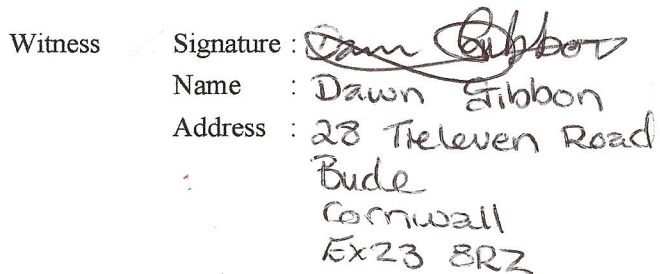 Witness Signature : Dawn Gibbon
Name : Dawn Gibbon
Address : 28 Treleven Road
Bude
Cornwall
Ex23 8RZ